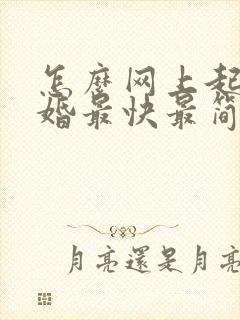 怎麼网上起
婚最快最简
月亮還是月亮